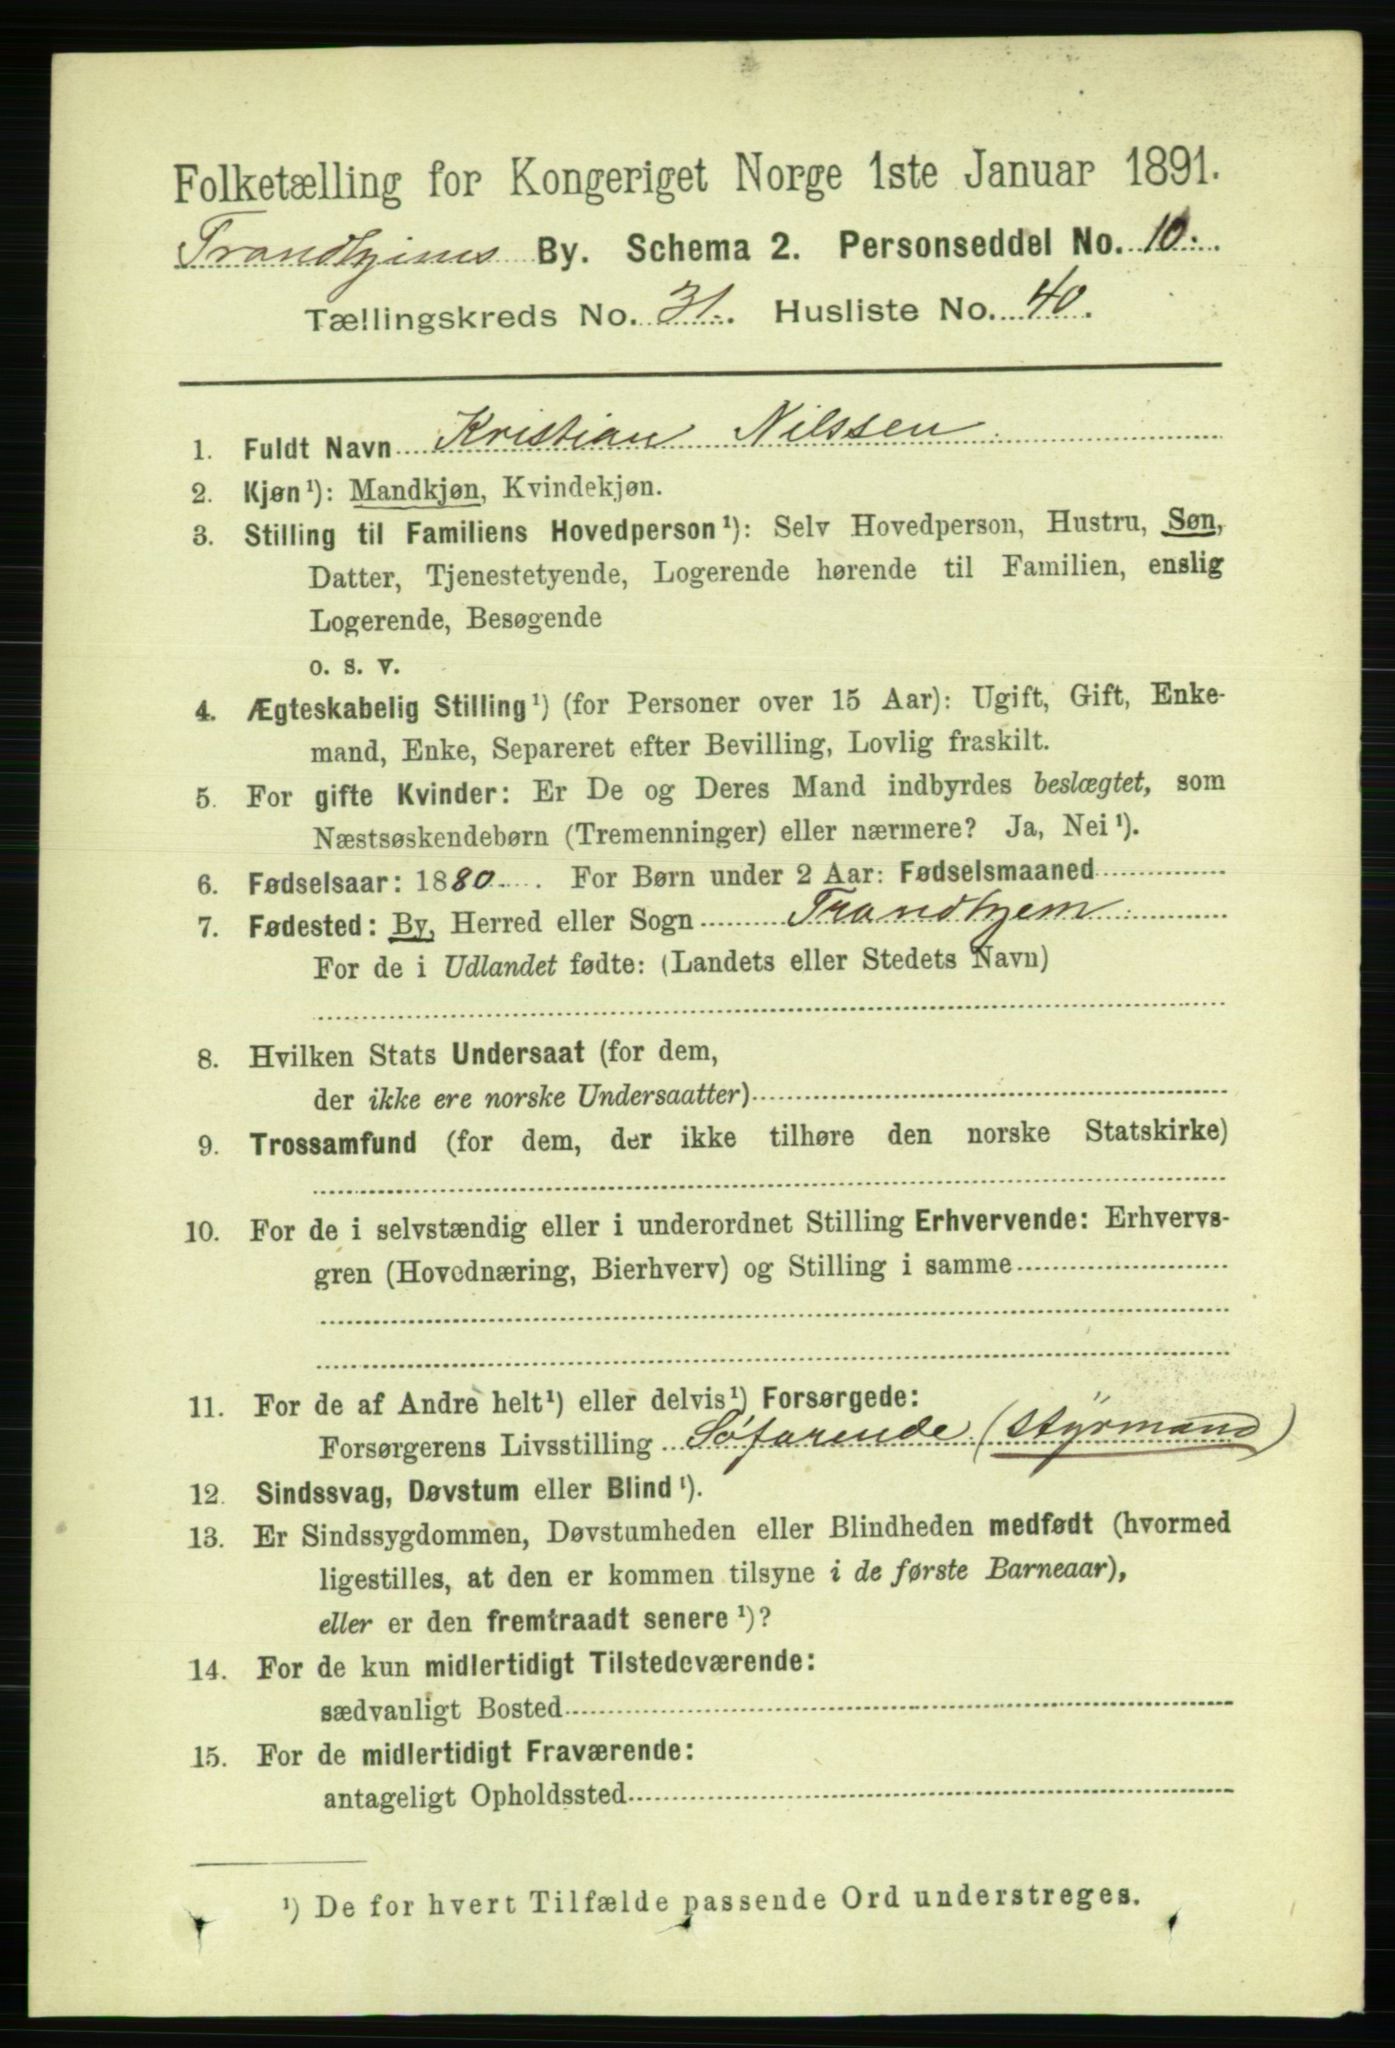 Folketælling for Kongeriget Norge 1ste Januar 1891.
Trondhjems By. Schema 2. Personseddel No. 10.
Tællingskreds No. 31. Husliste No. 40.
1. Fuldt Navn Kristian Nilssen
2. Kjøn¹): Mandkjøn, Kvindekjøn.
3. Stilling til Familiens Hovedperson¹): Selv Hovedperson, Hustru, Søn,
Datter, Tjenestetyende, Logerende hørende til Familien, enslig
Logerende, Besøgende
o. s. v.
4. Ægteskabelig Stilling¹) (for Personer over 15 Aar): Ugift, Gift, Enke-
mand, Enke, Separeret efter Bevilling, Lovlig fraskilt.
5. For gifte Kvinder: Er De og Deres Mand indbyrdes beslægtet, som
Næstsøskendebørn (Tremenninger) eller nærmere? Ja, Nei¹).
6. Fødselsaar: 1880. For Børn under 2 Aar: Fødselsmaaned
7. Fødested: By, Herred eller Sogn Trondhjem
For de i Udlandet fødte: (Landets eller Stedets Navn)
8. Hvilken Stats Undersaat (for dem,
der ikke ere norske Undersaatter)
9. Trossamfund (for dem, der ikke tilhøre den norske Statskirke)
10. For de i selvstændig eller i underordnet Stilling Erhvervende: Erhvervs-
gren (Hovednæring, Bierhverv) og Stilling i samme
11. For de af Andre helt¹) eller delvis¹) Forsørgede:
Forsørgerens Livsstilling Søfarende (Styrmand)
12. Sindssvag, Døvstum eller Blind¹).
13. Er Sindssygdommen, Døvstumheden eller Blindheden medfødt (hvormed
ligestilles, at den er kommen tilsyne i de første Barneaar),
eller er den fremtraadt senere¹)?
14. For de kun midlertidigt Tilstedeværende:
sædvanligt Bosted
15. For de midlertidigt Fraværende:
antageligt Opholdssted
¹) De for hvert Tilfælde passende Ord understreges.